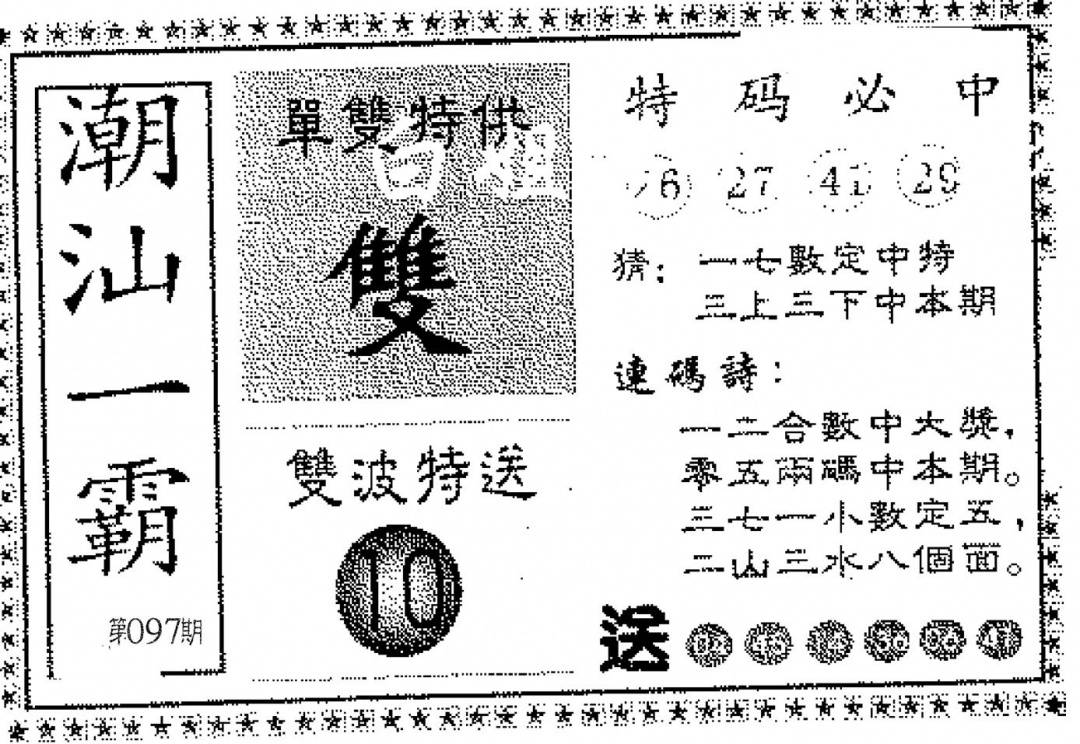 潮汕一霸
第097期
單雙特供
白姐
雙
雙波特送
10
特碼必中
27 41 29
猜：一七數定中特
三上三下中本期
連碼詩：
一二合數中大獎，
零五兩碼中本期。
三七一小數定五，
二山三水八個面。
送 02 45 14 36 06 41